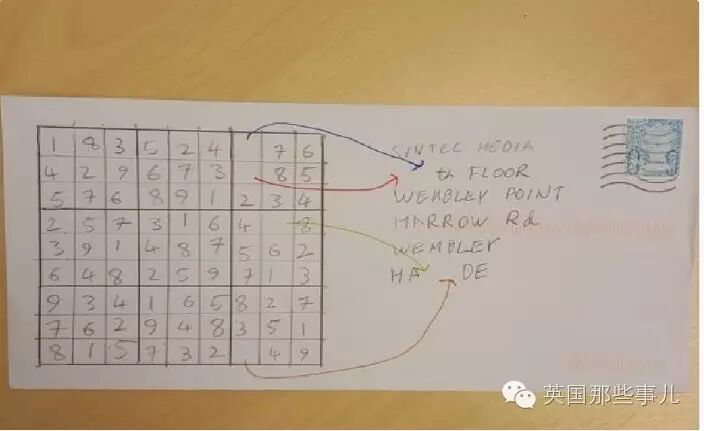 1 8 3 5 2 4 7 6
4 2 9 6 7 3 8 5
5 7 6 8 9 1 2 3 4
2 5 7 3 1 6 4 8
3 9 1 4 8 7 5 6 2
6 4 8 2 5 9 7 1 3
9 3 4 1 6 5 8 2 7
7 6 2 9 4 8 3 5 1
8 1 5 7 3 2 4 9
SINTEC MEDIA
th FLOOR
WEMBLEY POINT
HARROW Rd
WEMBLEY
HA DE
英国那些事儿